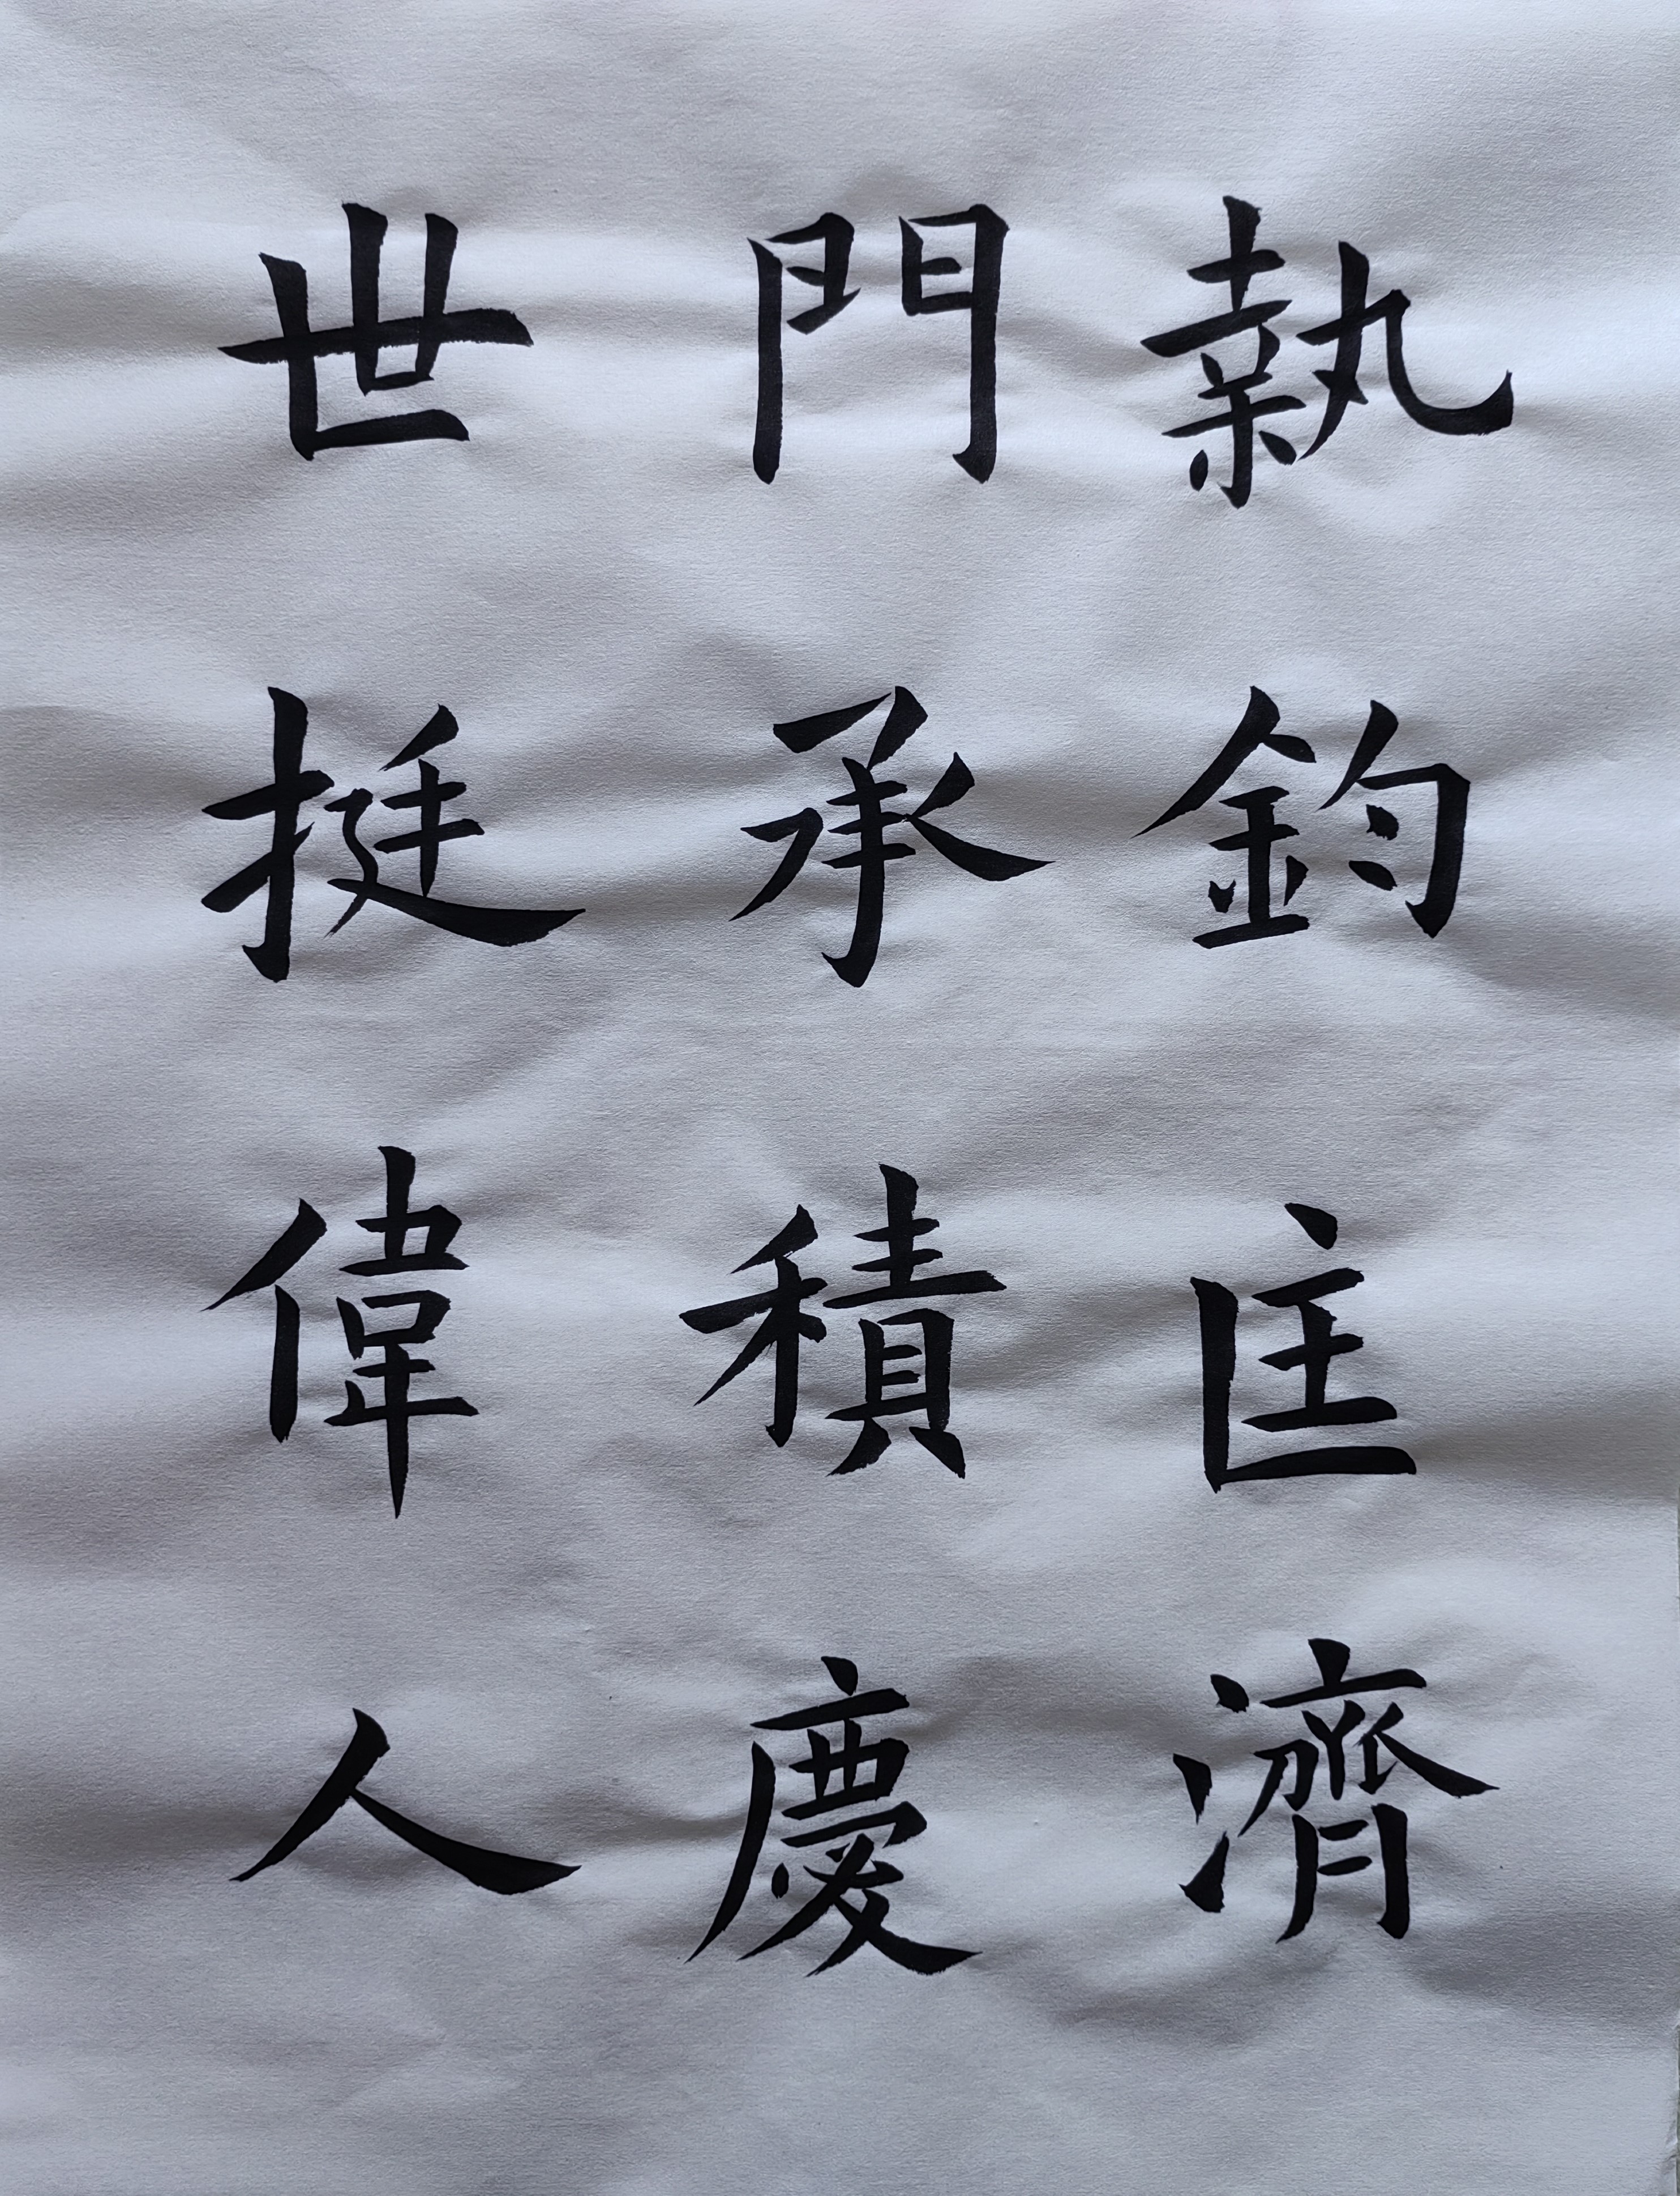 執鈞匡濟
門承積慶
世挺偉人